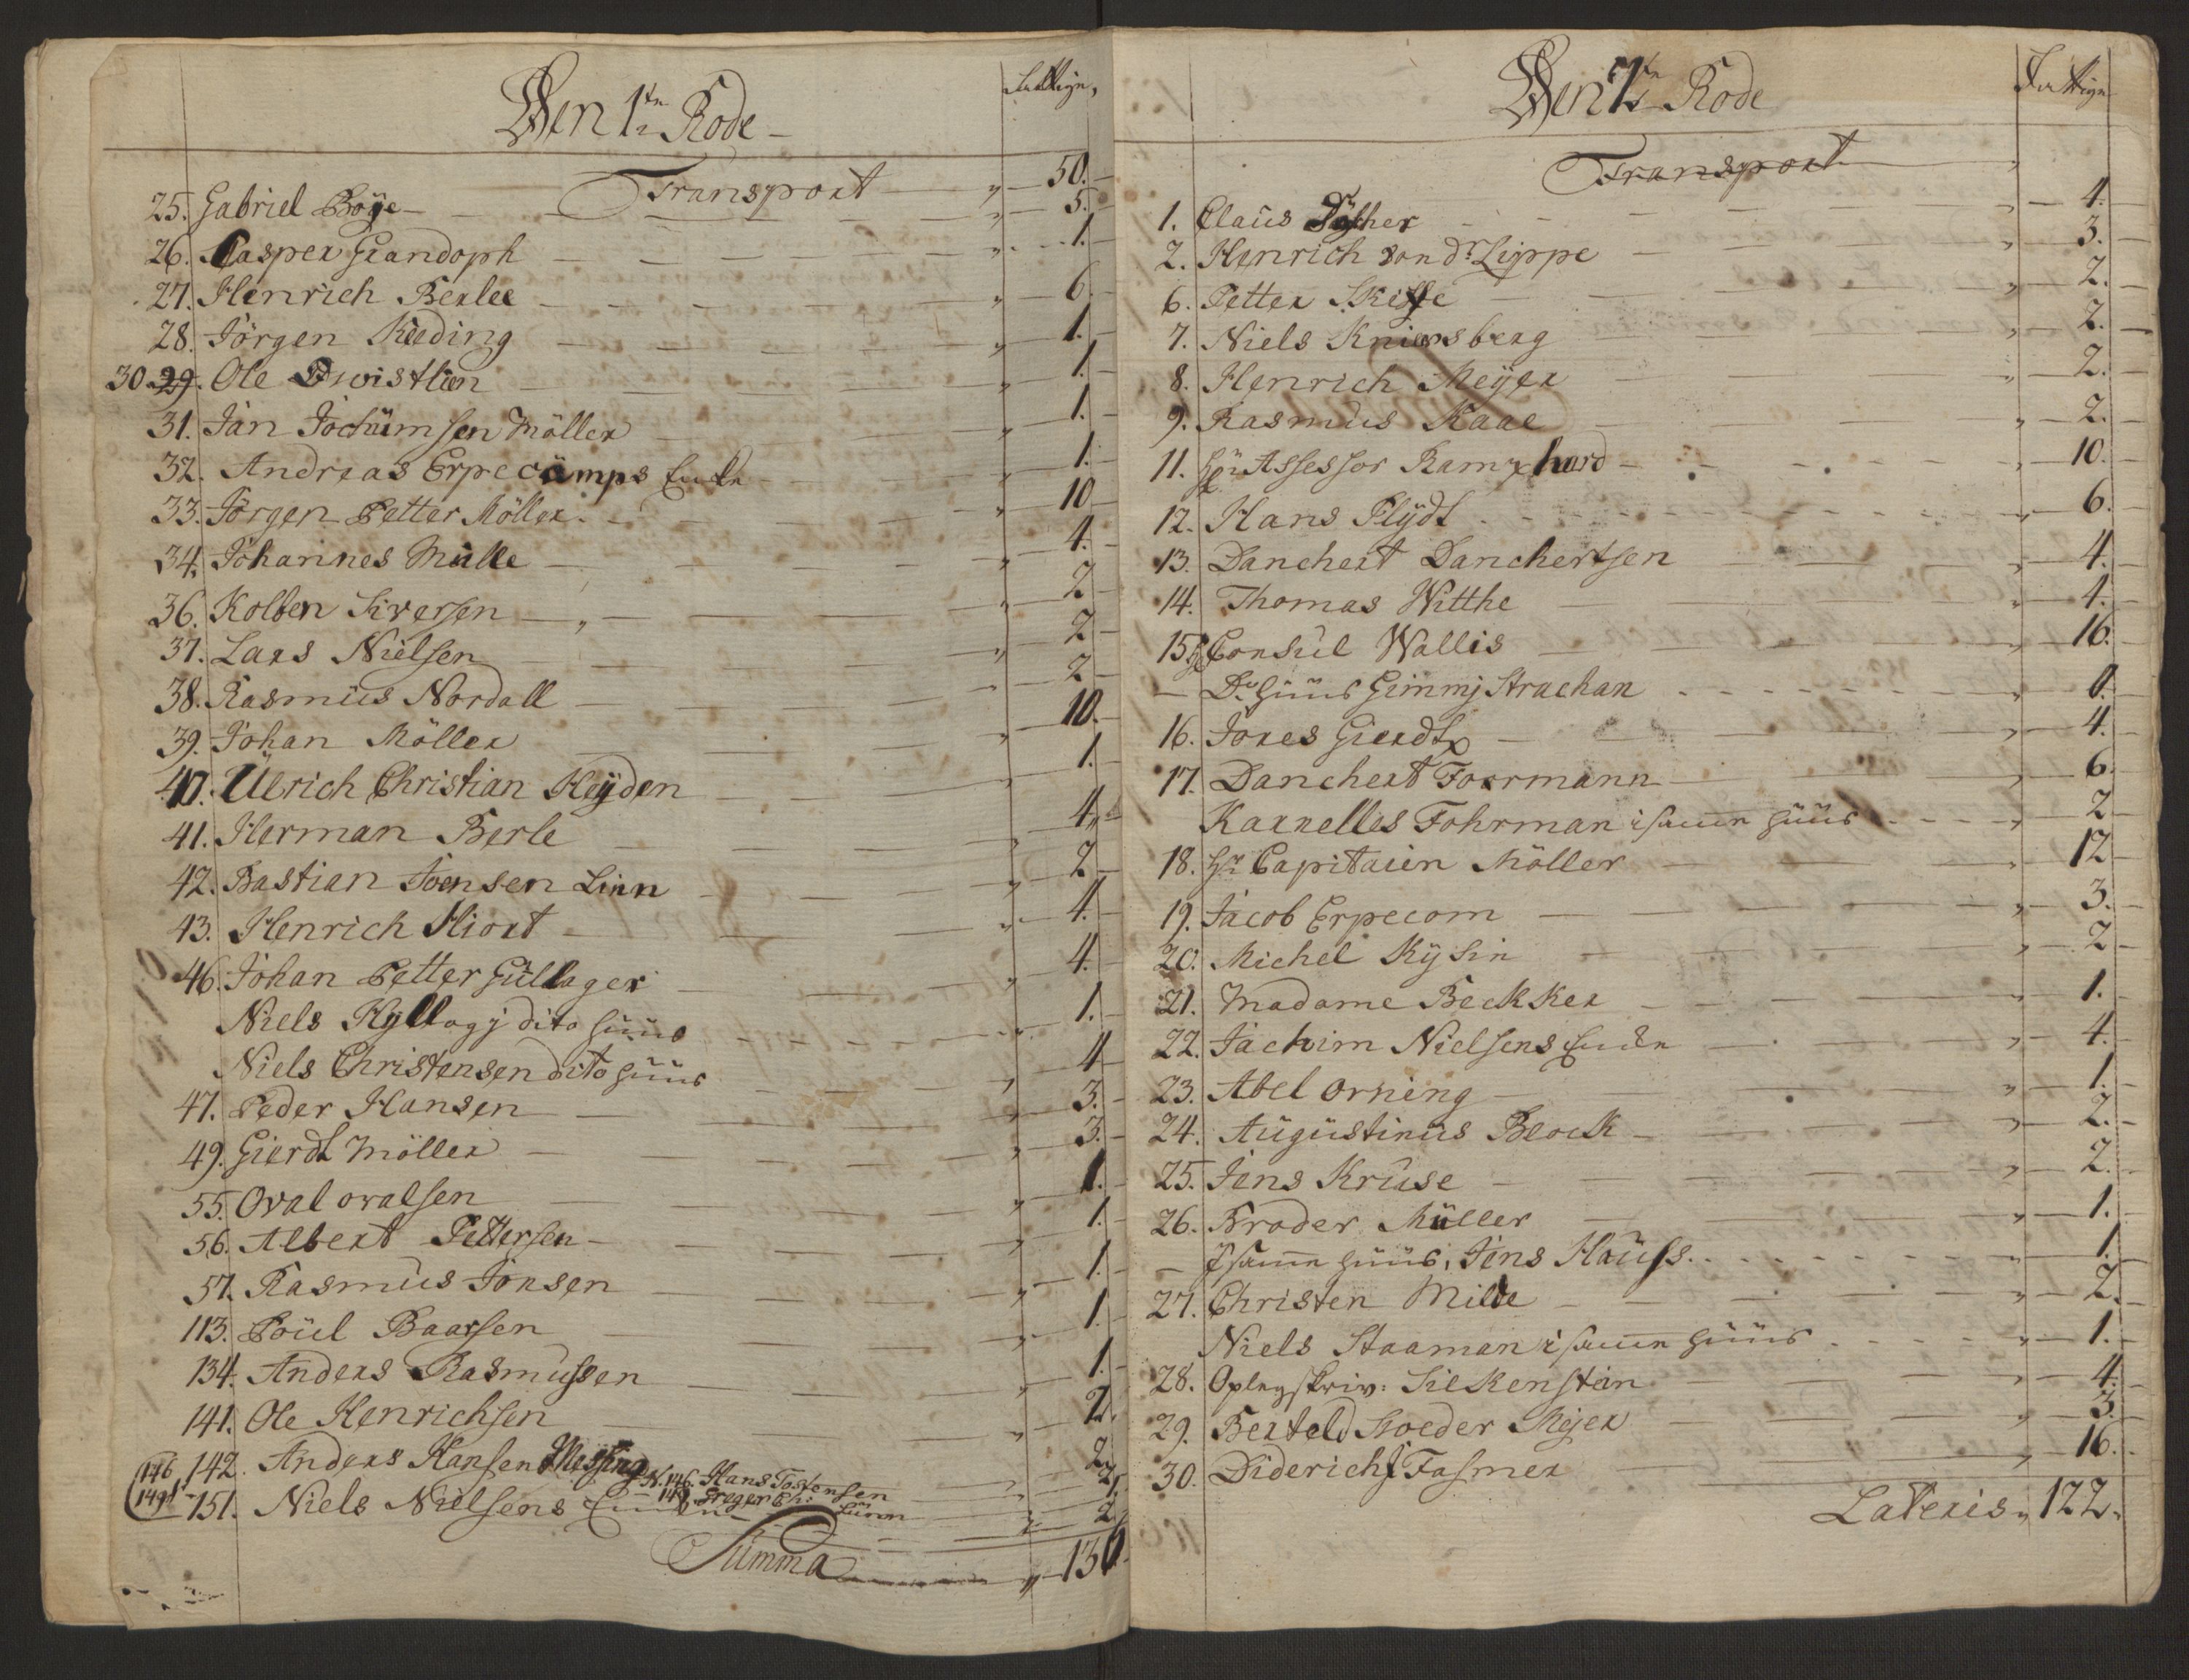 Den 1te Rode
Fattige,
Transport 50.
25. Gabriel Böye 5.
26. Casper Grandoph 1.
27. Henrich Berlee 6
28. Jörgen Reeding 1.
30. 29. Ole Qwistlien 1.
31. Jan Jochumsen Möller 1.
32. Andreas Erpecamps Encke 1.
33. Jörgen Petter Möller 10
34. Johannes Mulle 4.
36. Kolben Siversen 2
37. Lars Nielsen 2
38. Rasmus Nordall 2
39. Johan Möller 10.
40. Ulrich Christian Heyden 1.
41. Herman Berle 4
42. Bastian Joensen Linn 2
43. Henrich Hiort 4.
46. Johan Petter Gullager 4.
Niels Kyllogj dito Huus 1.
Niels Christensen dito Huus 4
47. Peder Hansen 3.
49. Gierdt Möller 3.
55. Oval ovalsen 1.
56. Albert Pettersen 1.
57. Rasmus Jonsen 1.
113. Poul Baarsen 1.
134. Anders Rasmussen 1.
141. Ole Henrichsen 2.
142. Anders Hansen Messing 2
146 N. 146. Hans Tostensen 2
149 148. Greger Ch: Lünn
151. Niels Nielsens Encke 2
Summa 130
Den 2n Rode
Fattige
Transport
1. Claus Fyscher 4.
2. Henrich von dr Lippe 3.
6. Petter Skiffe 2.
7. Niels Kniensberg 2.
8. Henrich Meyer 2.
9. Rasmus Kaae 2.
11. Hr Assessor Ramshard 10.
12. Hans Flydt 6.
13. Danchert Danchertsen 4.
14. Thomas Witthe 4.
15. H Consul Wallis 16.
Do Huus Gimmj Strachan
16. Jores Gierdtz 4.
17. Danchert Foormann 6.
Karnelles Fohrman i samme Huus 2
18. Hr Capitaien Möller 12
19. Jacob Erpecom 3.
20. Michel Kysin 2
21. Madame Beckker 1.
22. Jachim Nielsens Encke 4.
23. Abel orning 1.
24. Augustinus Block 2.
25. Jens Kruse 2.
26. Broder Müller 1.
I samme Huus, Jens Hauss 1
27. Christen Milde 2.
Niels Staaman i samme Huus 1.
28. Oplagskriv: Silkenstein 4.
29. Berteld Stoeder Meyer 3.
30. Diderich Fasmer 16.
Lateris 122.